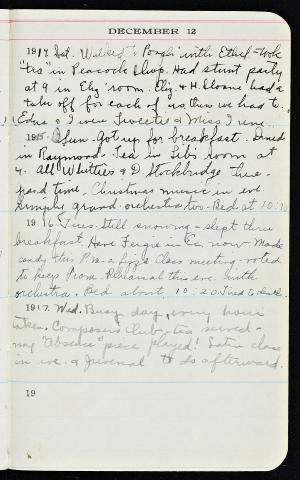 DECEMBER 12
1914 Sat. Walked to Pough' with Ethel - took
"tea" in Peacock Shop. Had stunt party
at 9 in Eliz' room. Eliz & H. Sloane had a
take off for each of us then we had to.
Edna & I were Tweets & Miss
1915 - Sun. Got up for breakfast. Dined
in Raymond - Tea in Lib's room at
4. All Whittiers & D. Stockbridge there -
good time. Christmas music in eve.
Simply grand. orchestra too - Bed at 10:10
1916 Tues. Still snowing - slept thru
breakfast Have Fergie in Ec. now Made
candy this P.M - a fizzle Class meeting - voted
to keep Prom. Rehearsal this eve. with
orchestra. Bed about 10:20 Tired to death -
1917. Wed. Busy day, every hour
taken. Composers Club - tea served -
my "Absence" piece played! Latin class
in eve. & Juvenal to do afterward.
19